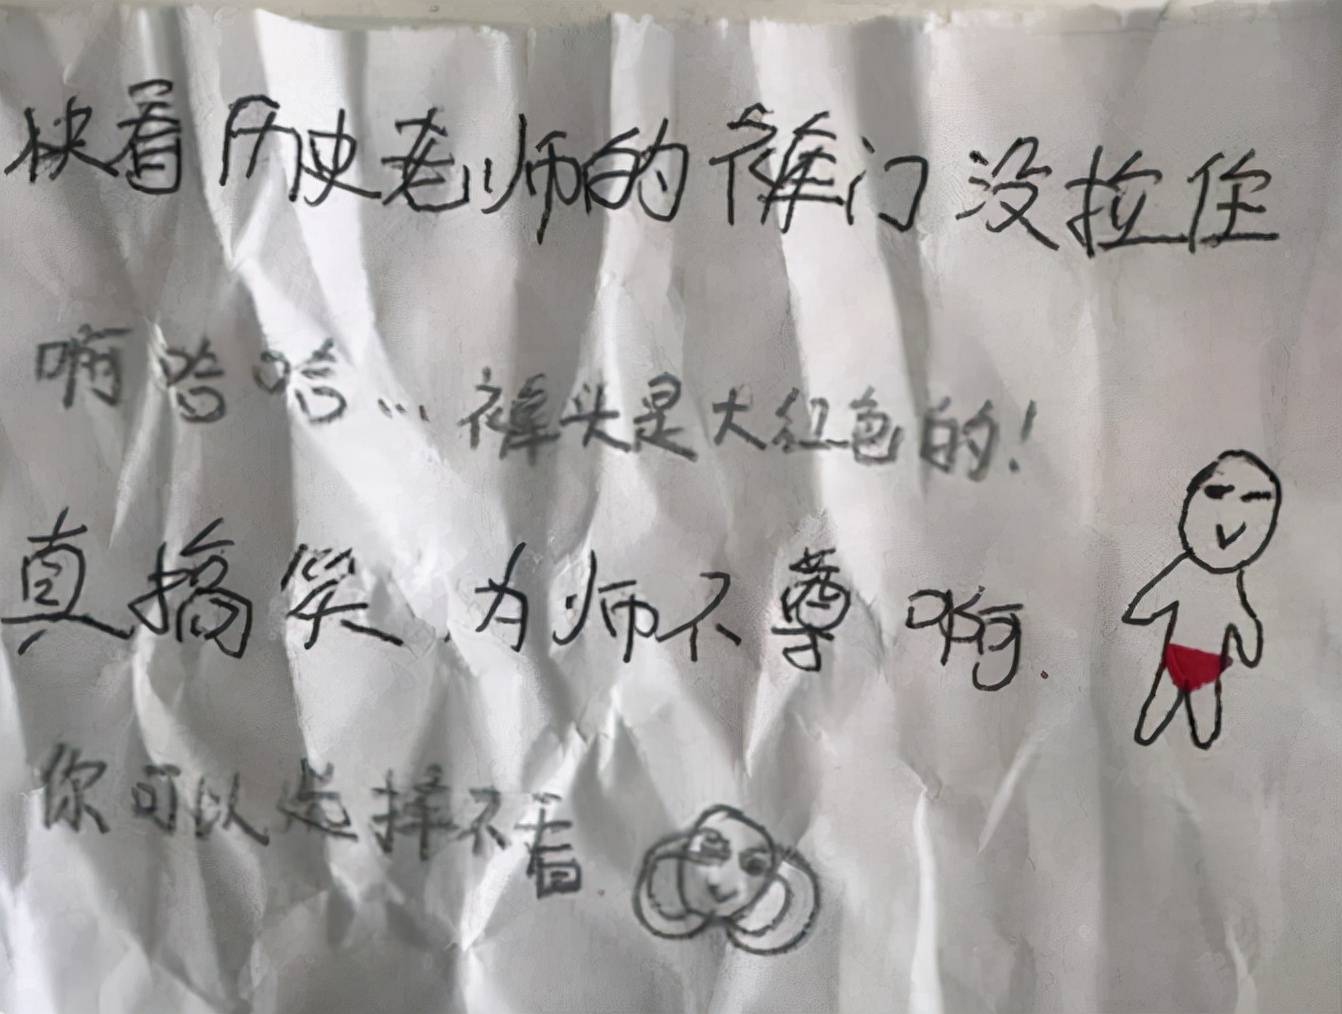 快看历史老师的裤门没拉住
啊哈哈…裤头是大红色的!
真搞笑,为师不尊啊.
你可以选择不看.